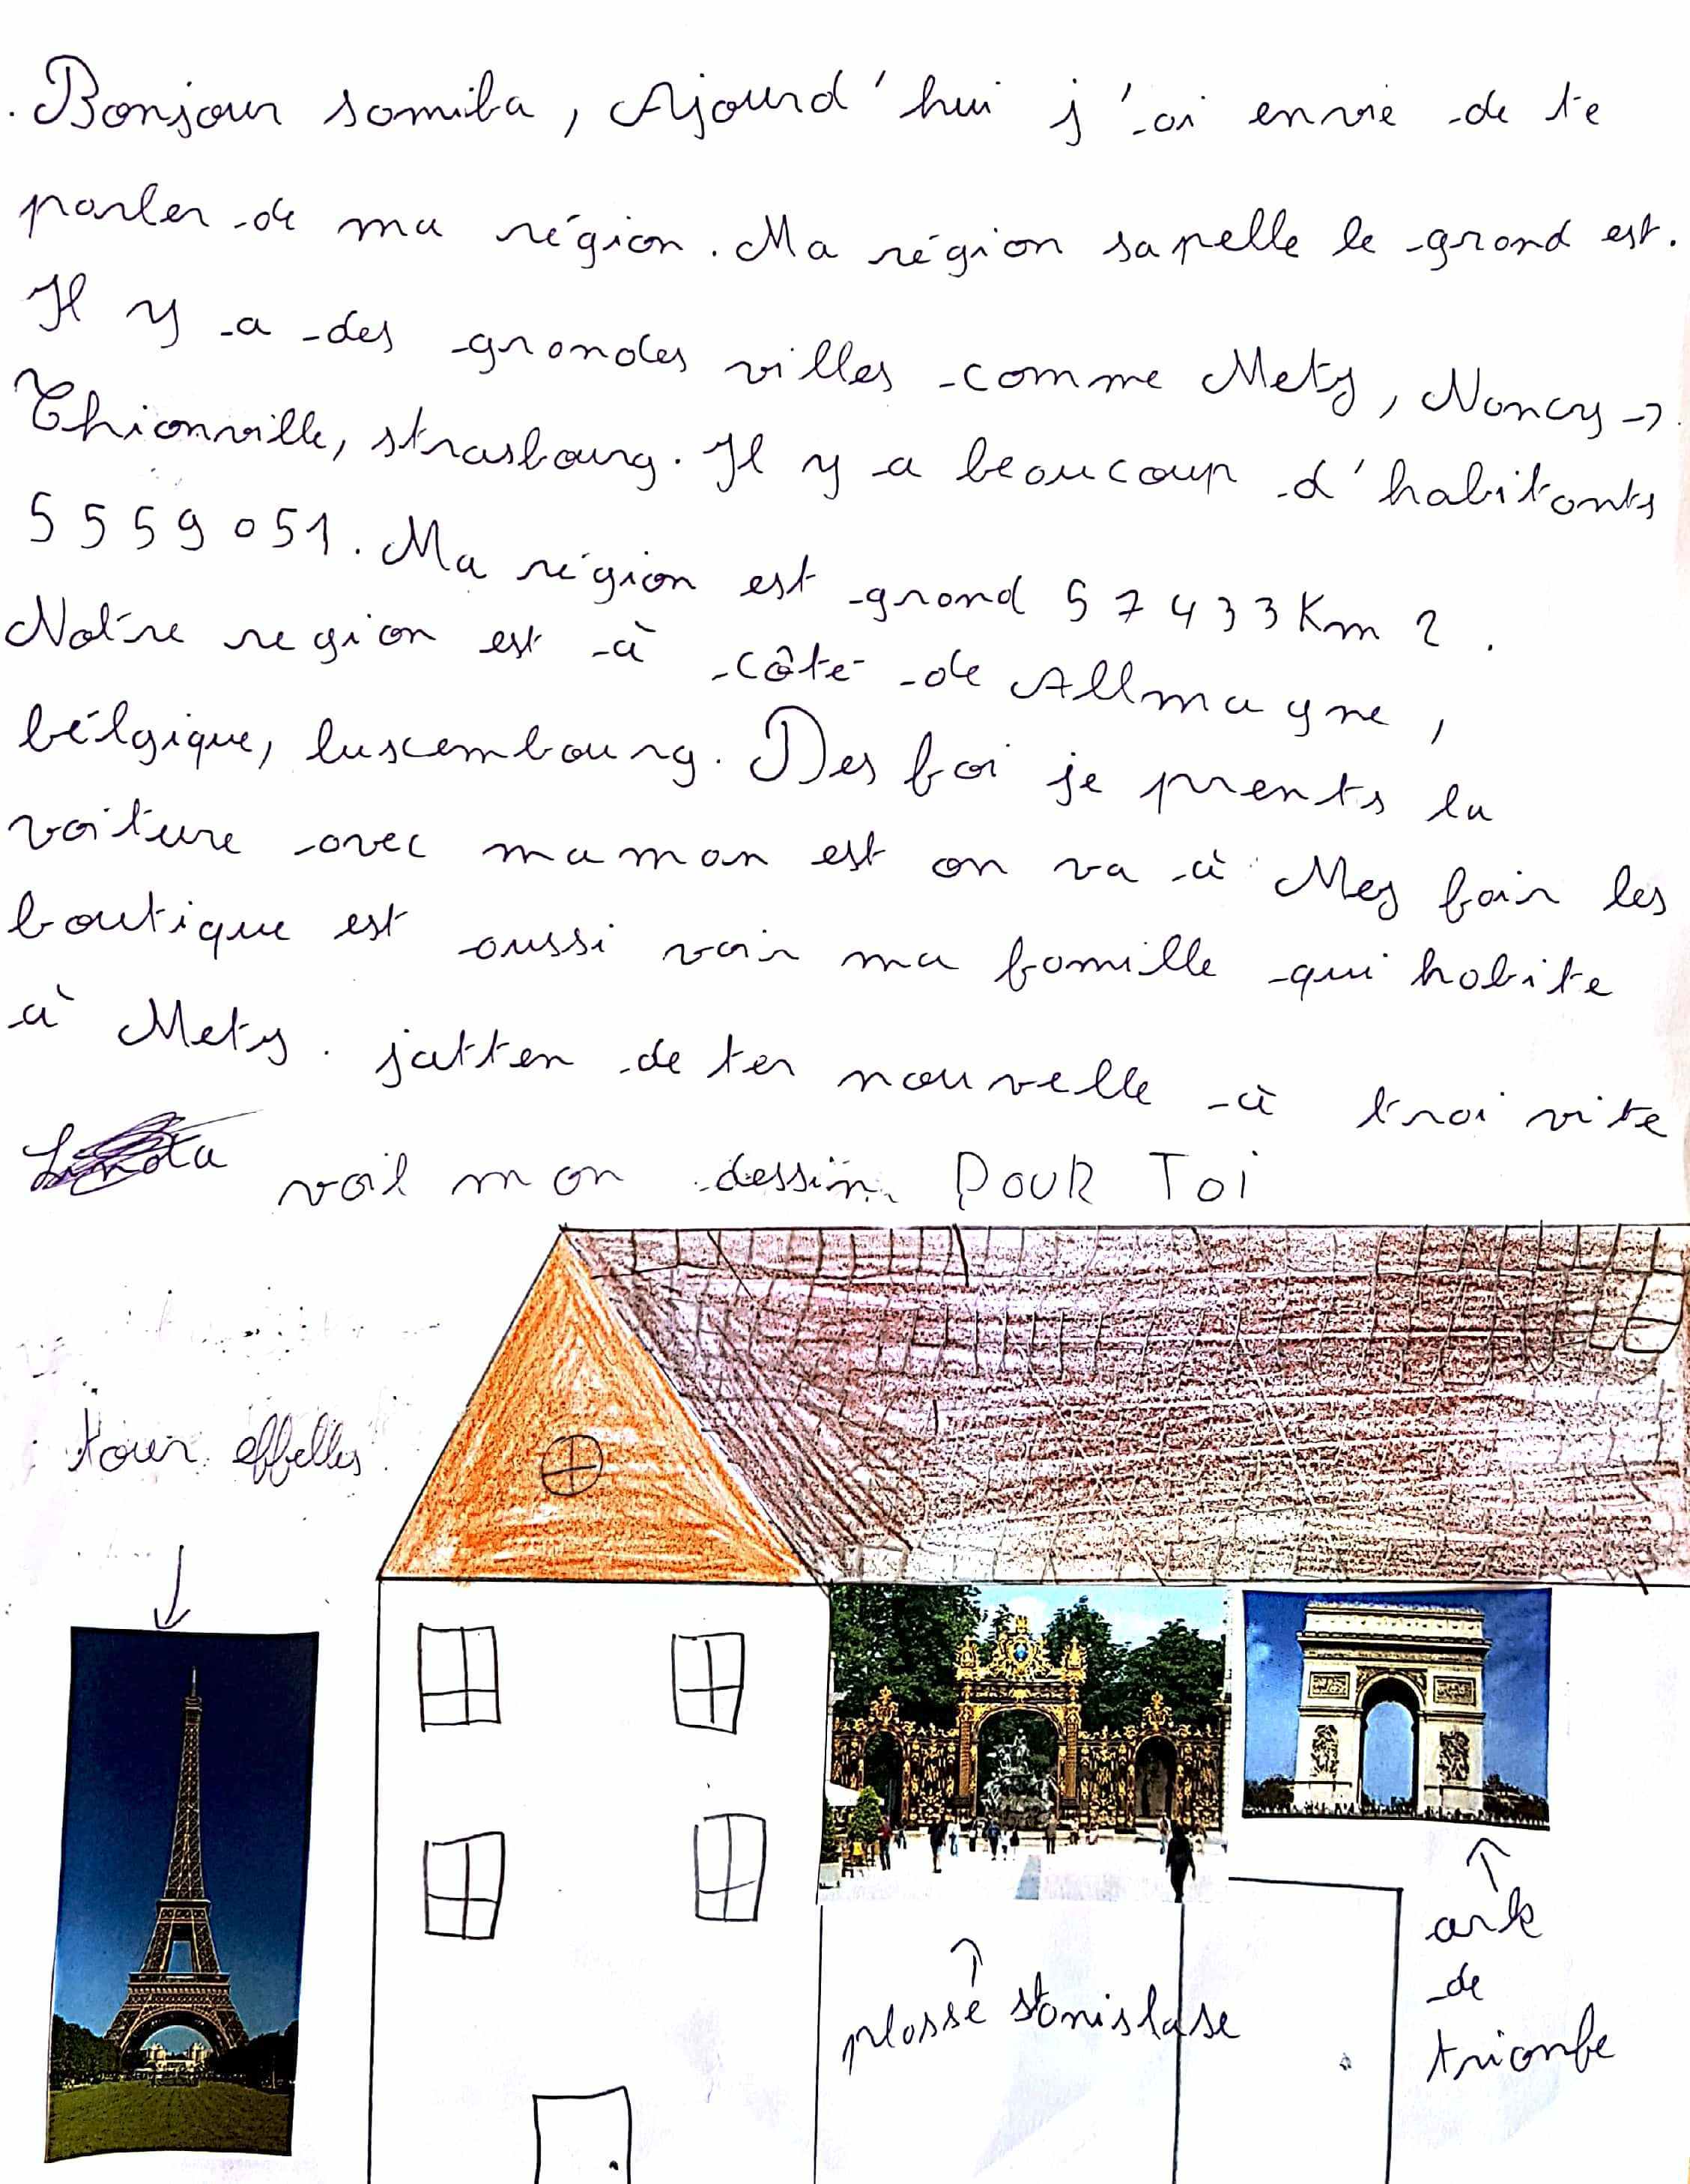 . Bonjour somiba, Ajourd'hui j'ai envie de te
parler de ma région. Ma région sapelle le grand est.
Il y a des grandes villes comme Metz, Nancy →
Thionville, strasbourg. Il y a beaucoup d'habitants
5 5 5 9 0 5 1. Ma région est grand 5 7 4 3 3 Km 2.
Notre region est à côté de Allmagne,
bélgique, luxembourg. Des foi je prents la
voiture avec maman est on va à Mez fair les
boutique est aussi voir ma famille qui habite
à Metz. jatten de ter nouvelle à troi vite
voil mon dessin POUR Toi
tour effelles
plasse stanislase
ark
de
trionfe